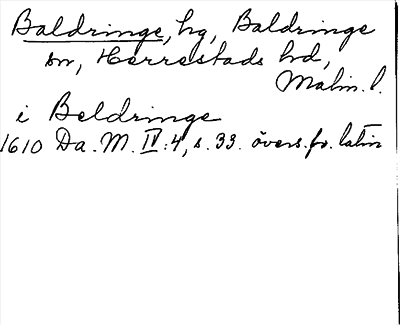 Baldringe, hg, Baldringe
sn, Herrestads hd,
Malm. l.
i Beldringe
1610 Da. M. IV:4, s. 33. övers. fr. latin